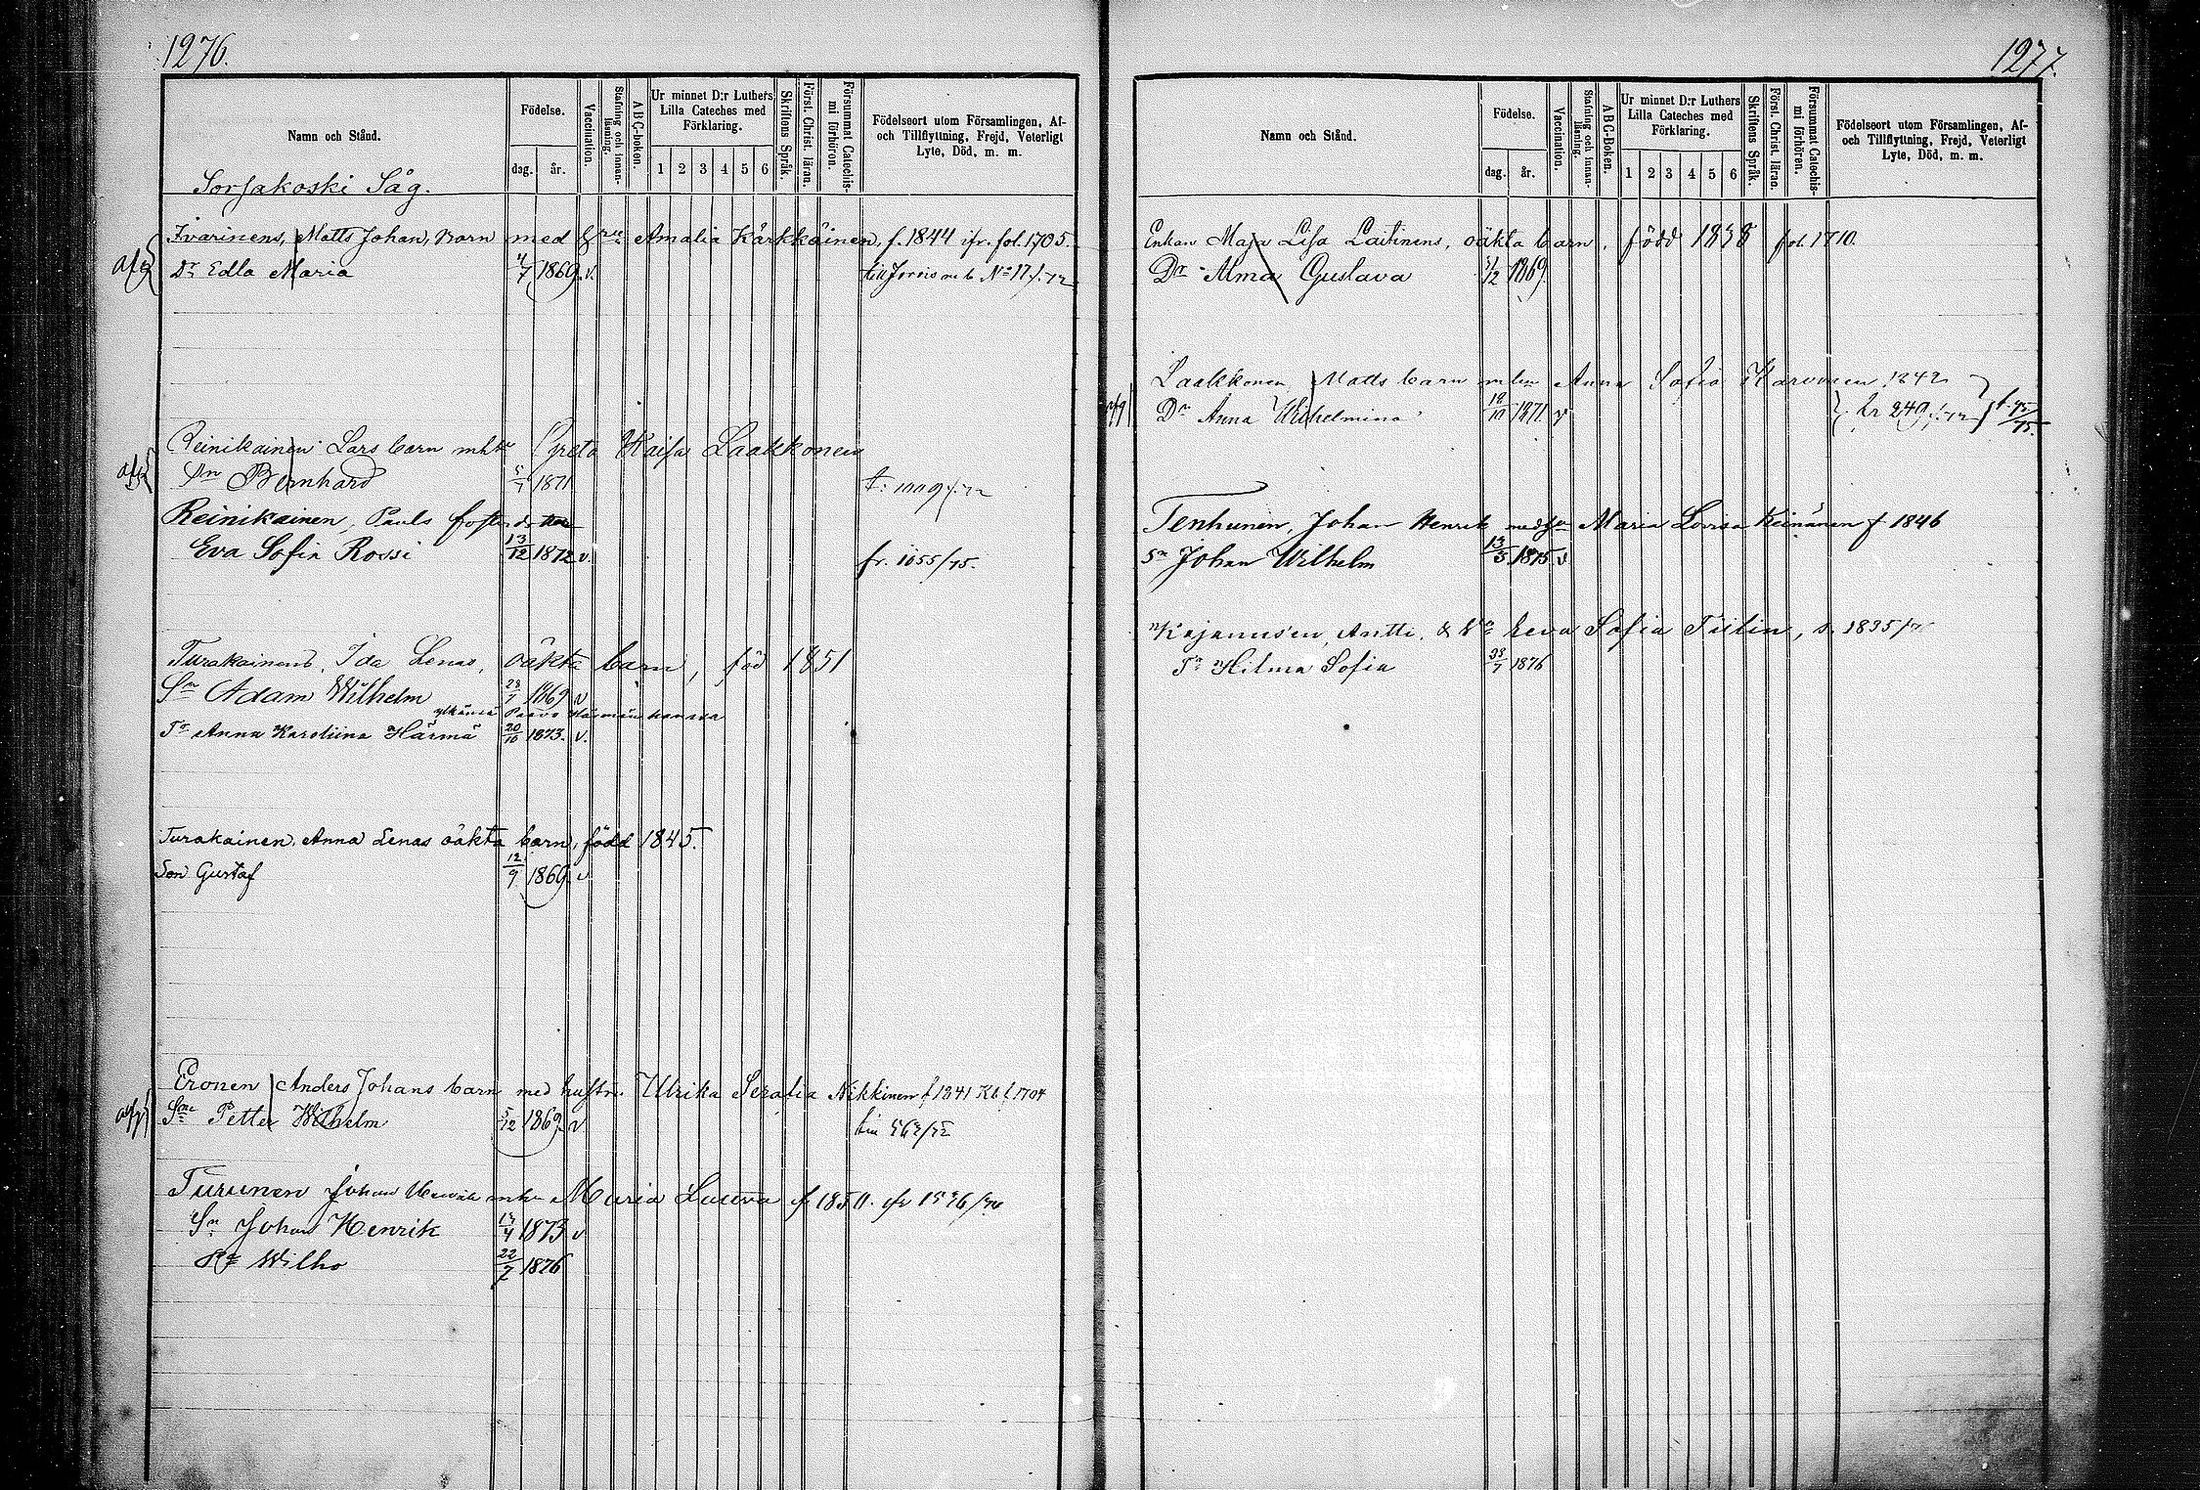 1276.
Namn och Stånd.
Födelse.
dag.
år.
Vaccination.
Stafning och innanläsning.
A B C-boken.
Ur minnet D:r Luthers Lilla Cateches med Förklaring.
1 2 3 4 5 6
Skriftens Språk.
Först. Christ. läran.
Försummat Catechismi förhören.
Födelseort utom Församlingen, Af- och Tillflyttning, Frejd, Veterligt Lyte, Död, m. m.
Sorsakoski Såg.
Ivarinens, Matts Johan, Barn med Amalia Kärkkäinen, f. 1844 fol. 1705.
Dr Edla Maria 4/7 1869. v.
Reinikainen Lars barn Greta Kaisa Laakkonen
Sn Bernhard 5/7 1871
Reinikainen, Pauls foster
Eva Sofia Rossi 13/12 1872 v. fr. 1055/75.
Turakainens, Ida Lenas, oäkta barn, föd 1851
Sn Adam Wilhelm 28/7 1869 v
Paavo Härmän kanssa
Tr Anna Karoliina Härmä 20/10 1873. v.
Turakainen, Anna Lenas oäkta barn, född 1845.
Son Gustaf 12/9 1869. v
Eronen Anders Johans barn med hustru Ulrika Serafia Nikkinen f 1841 Kb f 1704
Petter Wilhelm 5/12 1869. v
Turunen Johan Maria f. 1850.
Sn Johan Henrik 17/4 1873 v
Wilho 22/7 1876
1277.
Namn och Stånd.
Födelse.
dag.
år.
Vaccination.
Stafning och innanläsning.
A B C-Boken.
Ur minnet D:r Luthers Lilla Cateches med Förklaring.
1 2 3 4 5 6
Skriftens Språk.
Först. Christ. läran.
Försummat Catechismi förhören.
Födelseort utom Församlingen, Af- och Tillflyttning, Frejd, Veterligt Lyte, Död, m. m.
Enkan Maja Lisa Laitinens, oäkta barn. född 1838 fol. 1710.
Dr Alma Gustava 1869.
Laakkonen, Matts barn Anna Sofia Karvonen 1842
Dr Anna Wilhelmina 18/10 1871. v
Tenhunen, Johan Henrik Maria Lovisa Keinänen f 1846
Sn Johan Wilhelm 13/5 1875 v
Kajanusen, Antti, & Eeva Sofia Tiitin, s. 1835
Tr Hilma Sofia 1876